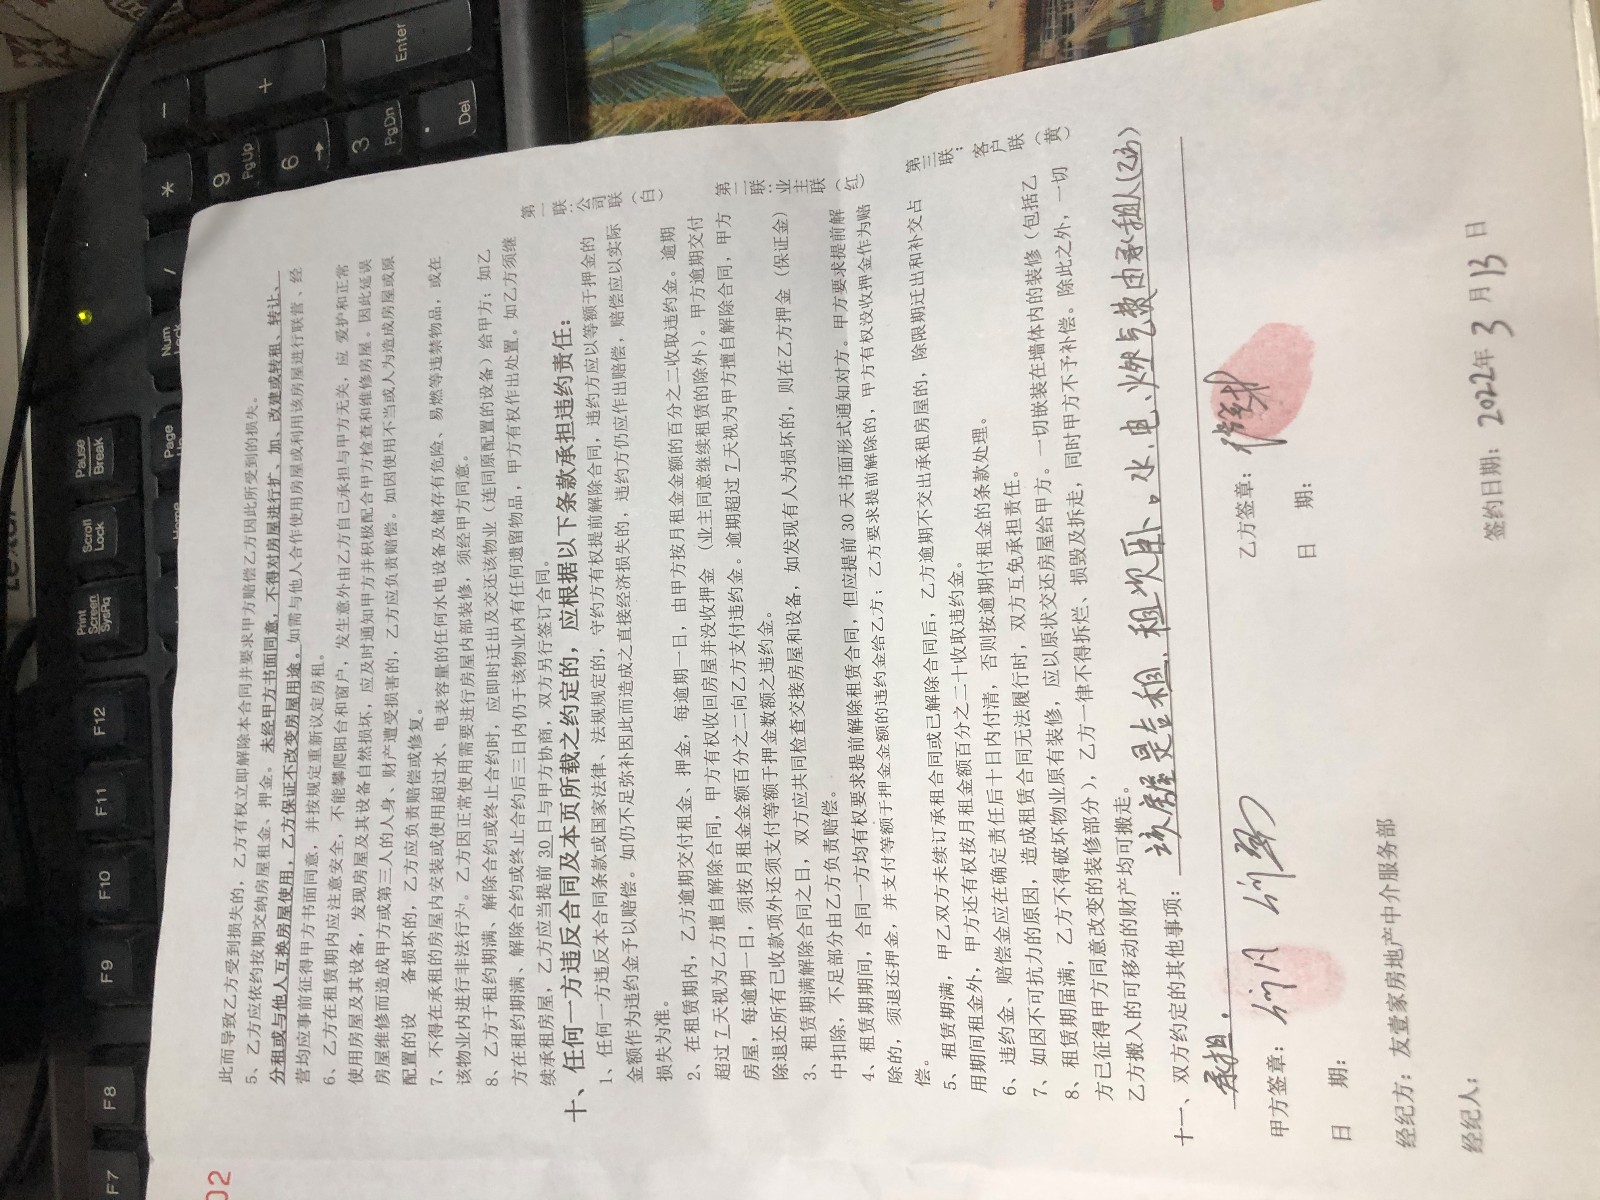 此而导致乙方受到损失的，乙方有权立即解除本合同并要求甲方赔偿乙方因此所受到的损失。
5、乙方应依约按期交纳房屋租金、押金。未经甲方书面同意，不得对房屋进行扩、加、改建或转租、转让、
分租或与他人互换房屋使用，乙方保证不改变房屋用途。如需与他人合作使用房屋或利用该房屋进行联营、经
营均应事前征得甲方书面同意，并按规定重新议定房租。
6、乙方在租赁期内应注意安全，不能攀爬阳台和窗户，发生意外由乙方自己承担与甲方无关，应 爱护和正常
使用房屋及其设备，发现房屋及其设备自然损坏，应及时通知甲方并积极配合甲方检查和维修房屋。因此延误
房屋维修而造成甲方或第三人的人身、财产遭受损害的，乙方应负责赔偿。如因使用不当或人为造成房屋或原
配置的设 备损坏的，乙方应负责赔偿或修复。
7、不得在承租的房屋内安装或使用超过水、电表容量的任何水电设备及储存有危险、易燃等违禁物品，或在
该物业内进行非法行为。乙方因正常使用需要进行房屋内部装修，须经甲方同意。
8、乙方于租约期满、解除合约或终止合约时，应即时迁出及交还该物业（连同原配置的设备）给甲方；如乙
方在租约期满、解除合约或终止合约后三日内仍于该物业内有任何遗留物品，甲方有权作出处置。如乙方须继
续承租房屋，乙方应当提前 30 日与甲方协商，双方另行签订合同。
十、任何一方违反合同及本页所载之约定的，应根据以下条款承担违约责任：
1、任何一方违反本合同条款或国家法律、法规规定的，守约方有权提前解除合同，违约方应以等额于押金的
金额作为违约金予以赔偿。如仍不足弥补因此而造成之直接经济损失的，违约方仍应作出赔偿，赔偿应以实际
损失为准。
2、在租赁期内，乙方逾期交付租金、押金，每逾期一日，由甲方按月租金金额的百分之二收取违约金。逾期
超过 7 天视为乙方擅自解除合同，甲方有权收回房屋并没收押金（业主同意继续租赁的除外）。甲方逾期交付
房屋，每逾期一日，须按月租金金额百分之二向乙方支付违约金。逾期超过 7 天视为甲方擅自解除合同，甲方
除退还所有已收款项外还须支付等额于押金数额之违约金。
3、租赁期满解除合同之日，双方应共同检查交接房屋和设备，如发现有人为损坏的，则在乙方押金（保证金）
中扣除，不足部分由乙方负责赔偿。
4、租赁期期间，合同一方均有权要求提前解除租赁合同，但应提前 30 天书面形式通知对方。甲方要求提前解
除的，须退还押金，并支付等额于押金金额的违约金给乙方；乙方要求提前解除的，甲方有权没收押金作为赔
偿。
5、租赁期满，甲乙双方未续订承租合同或已解除合同后，乙方逾期不交出承租房屋的，除限期迁出和补交占
用期间租金外，甲方还有权按月租金额百分之二十收取违约金。
6、违约金、赔偿金应在确定责任后十日内付清，否则按逾期付租金的条款处理。
7、如因不可抗力的原因，造成租赁合同无法履行时，双方互免承担责任。
8、租赁期届满，乙方不得破坏物业原有装修，应以原状交还房屋给甲方。一切嵌装在墙体内的装修（包括乙
方已征得甲方同意改变的装修部分），乙方一律不得拆烂、损毁及拆走，同时甲方不予补偿。除此之外，一切
乙方搬入的可移动的财产均可搬走。
十一、双方约定的其他事项：该房屋是合租，租次卧。水.电.燃气费由承租人(乙方)
承担.
甲方签章： 乙方签章：
日 期： 日 期：
经纪方：友壹家房地产中介服务部
经纪人： 签约日期：2022年 3 月 13 日
第一联：公司联（白）
第二联：业主联（红）
第三联：客户联（黄）
02
Enter
+
-
9
PgUp
6
→
3
PgDn
.
Del
*
/
Num
Lock
Page
Home
Pause
Break
Scroll
Lock
Print
Screen
SysRq
F12
F11
F10
F9
F8
F7